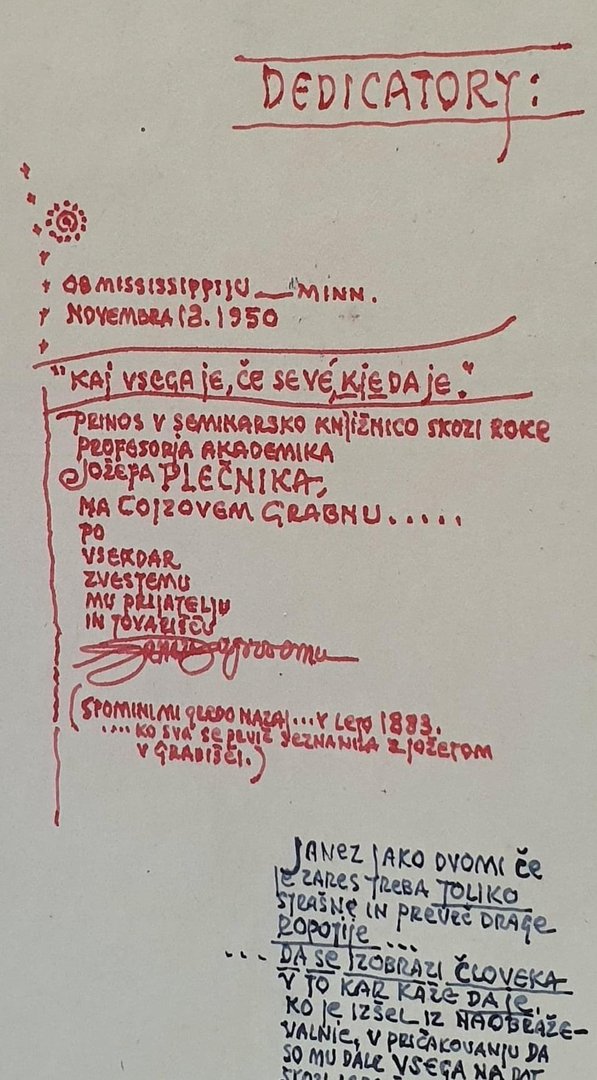 DEDICATORY:
OB MISSISSIPPIJU — MINN.
NOVEMBRA 13. 1950
"KAJ VSEGA JE, ČE SE VÉ, KJE DA JE."
PRINOS V SEMINARSKO KNJIŽNICO SKOZI ROKE
PROFESORJA AKADEMIKA
JOŽEFA PLEČNIKA,
NA COJZOVEM GRABNU.....
PO
VSEKDAR
ZVESTEMU
MU PRIJATELJU
IN TOVARIŠU
(SPOMINI MI GREDO NAZAJ... V LETO 1883.
.... KO SVA SE PRVIČ SEZNANILA Z JOŽETOM
V GRADIŠČI.)
JANEZ JAKO DVOMI ČE
JE ZARES TREBA TOLIKO
STRAŠNE IN PREVEČ DRAGE
ROPOTIJE ...
... DA SE IZOBRAZI ČLOVEKA
V TO KAR KAŽE DA JE.
KO JE IZŠEL IZ NAOBRAŽE-
VALNIC, V PRIČAKOVANJU DA
SO MU DALE VSEGA NA DAT